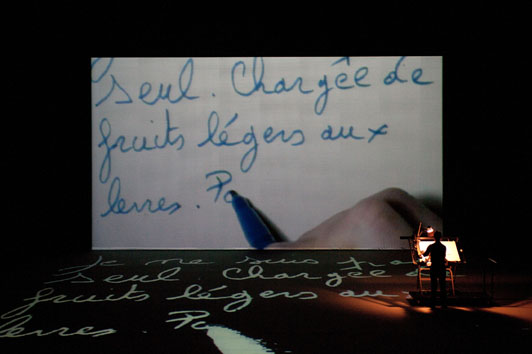 Seul. Chargée de
fruits légers aux
levres. Po
Je me suis
Seul. Chargée de
fruits légers aux
levres. Po